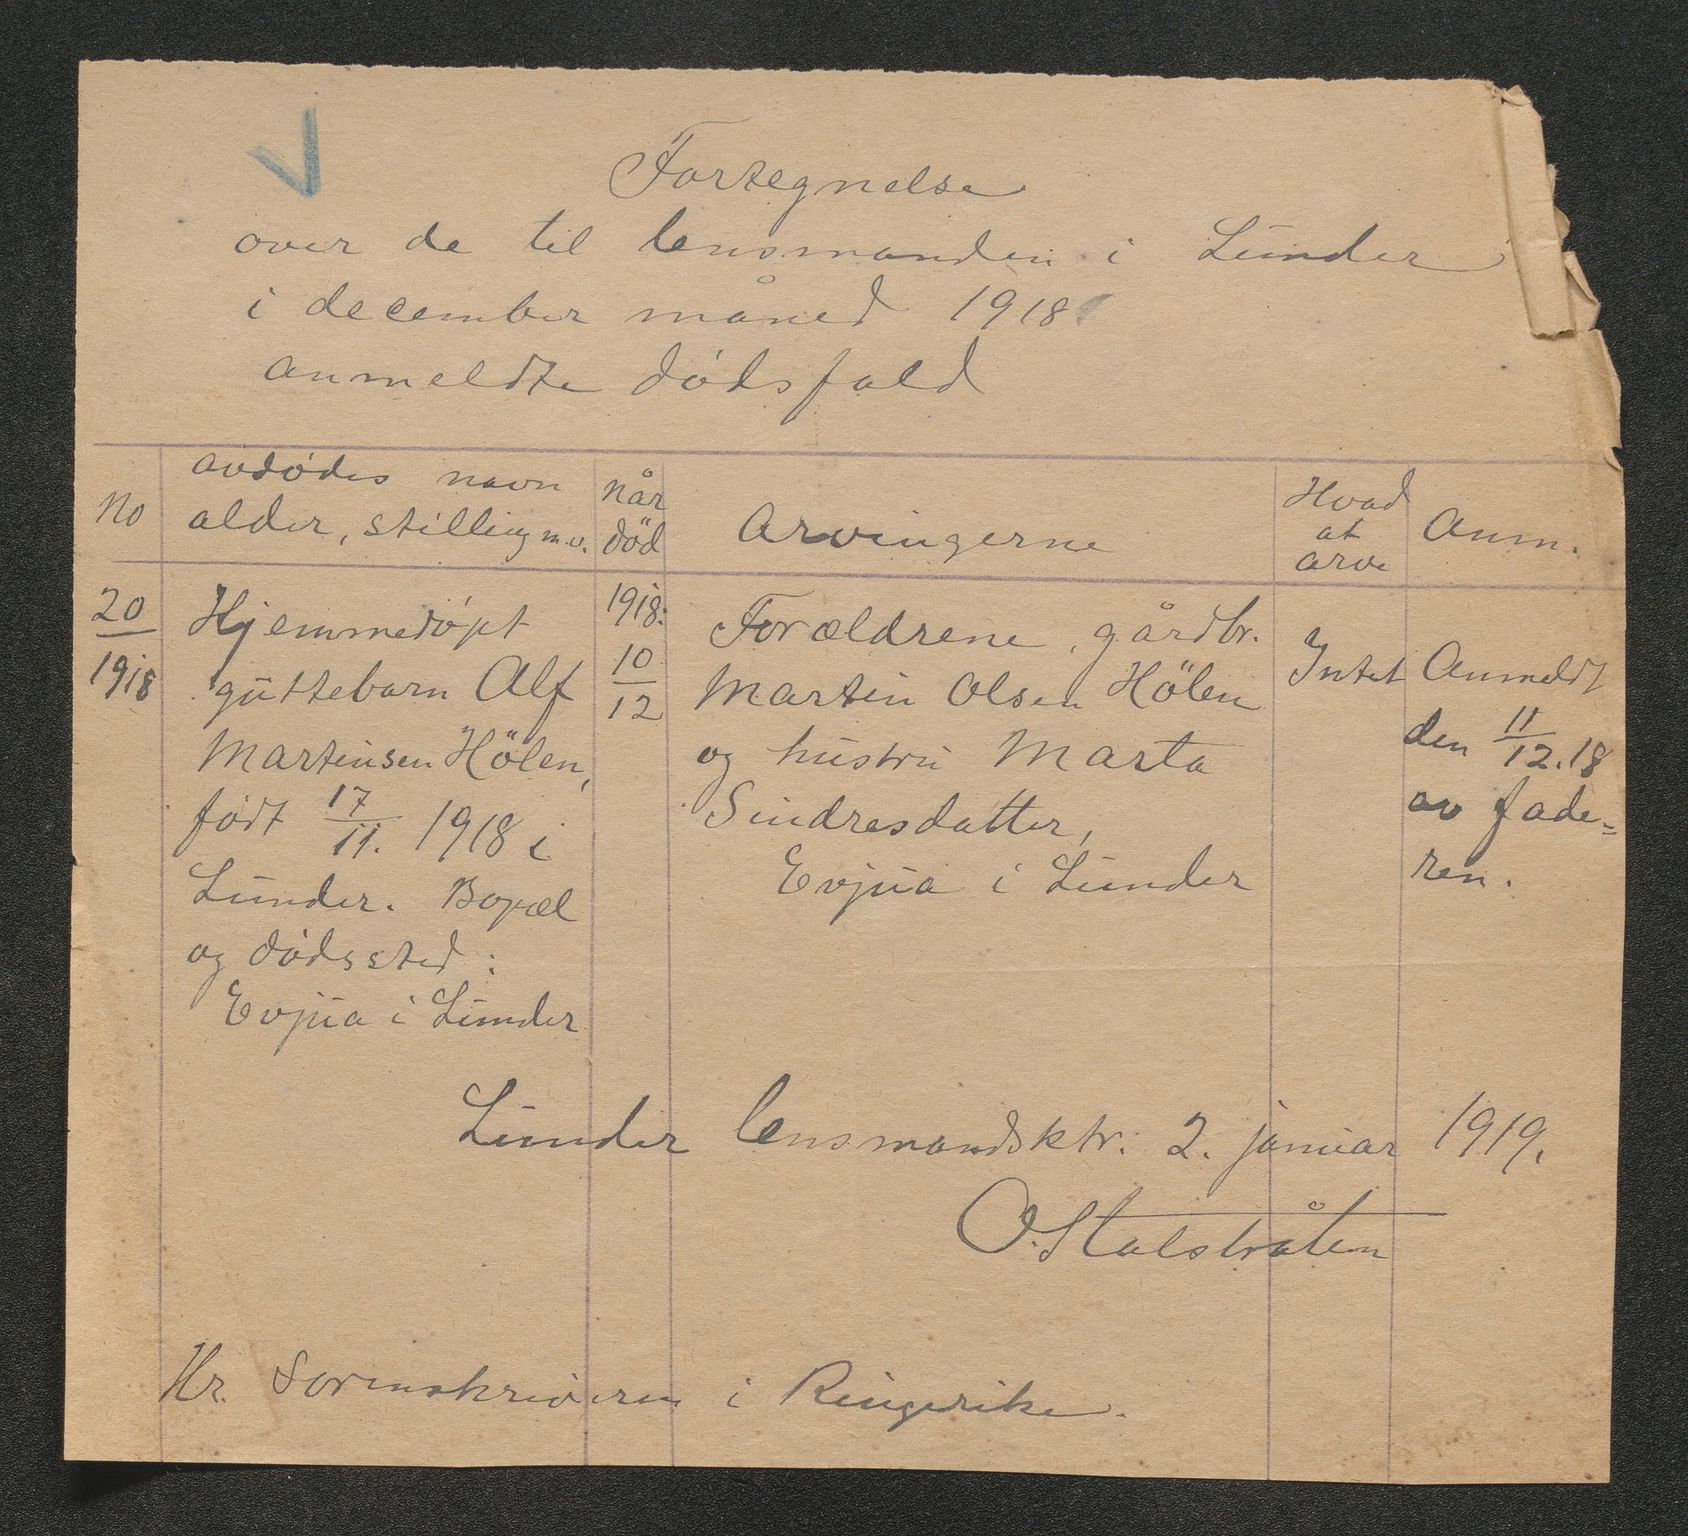 Fortegnelse
over de til lensmanden i Lunder
i december måned 1918
anmeldte dødsfald
No
avdødes navn
alder, stilling m.v.
når
død
Arvingerne
Hvad
at
arve
Anm.
20
1918
Hjemmedøpt
guttebarn Alf
Martinsen Hölen,
født 17/11. 1918 i
Lunder. Bopæl
og dødssted:
Evjua i Lunder
1918:
10
12
Forældrene, gårdbr.
Martin Olsen Hölen
og hustru Marta
Sindresdatter,
Evjua i Lunder
Intet
Anmeldt
den 11/12.18
av fade=
ren.
Lunder lensmandsktr. 2. januar 1919.
O. Stalsbråten
Hr. Sorenskriveren i Ringerike.